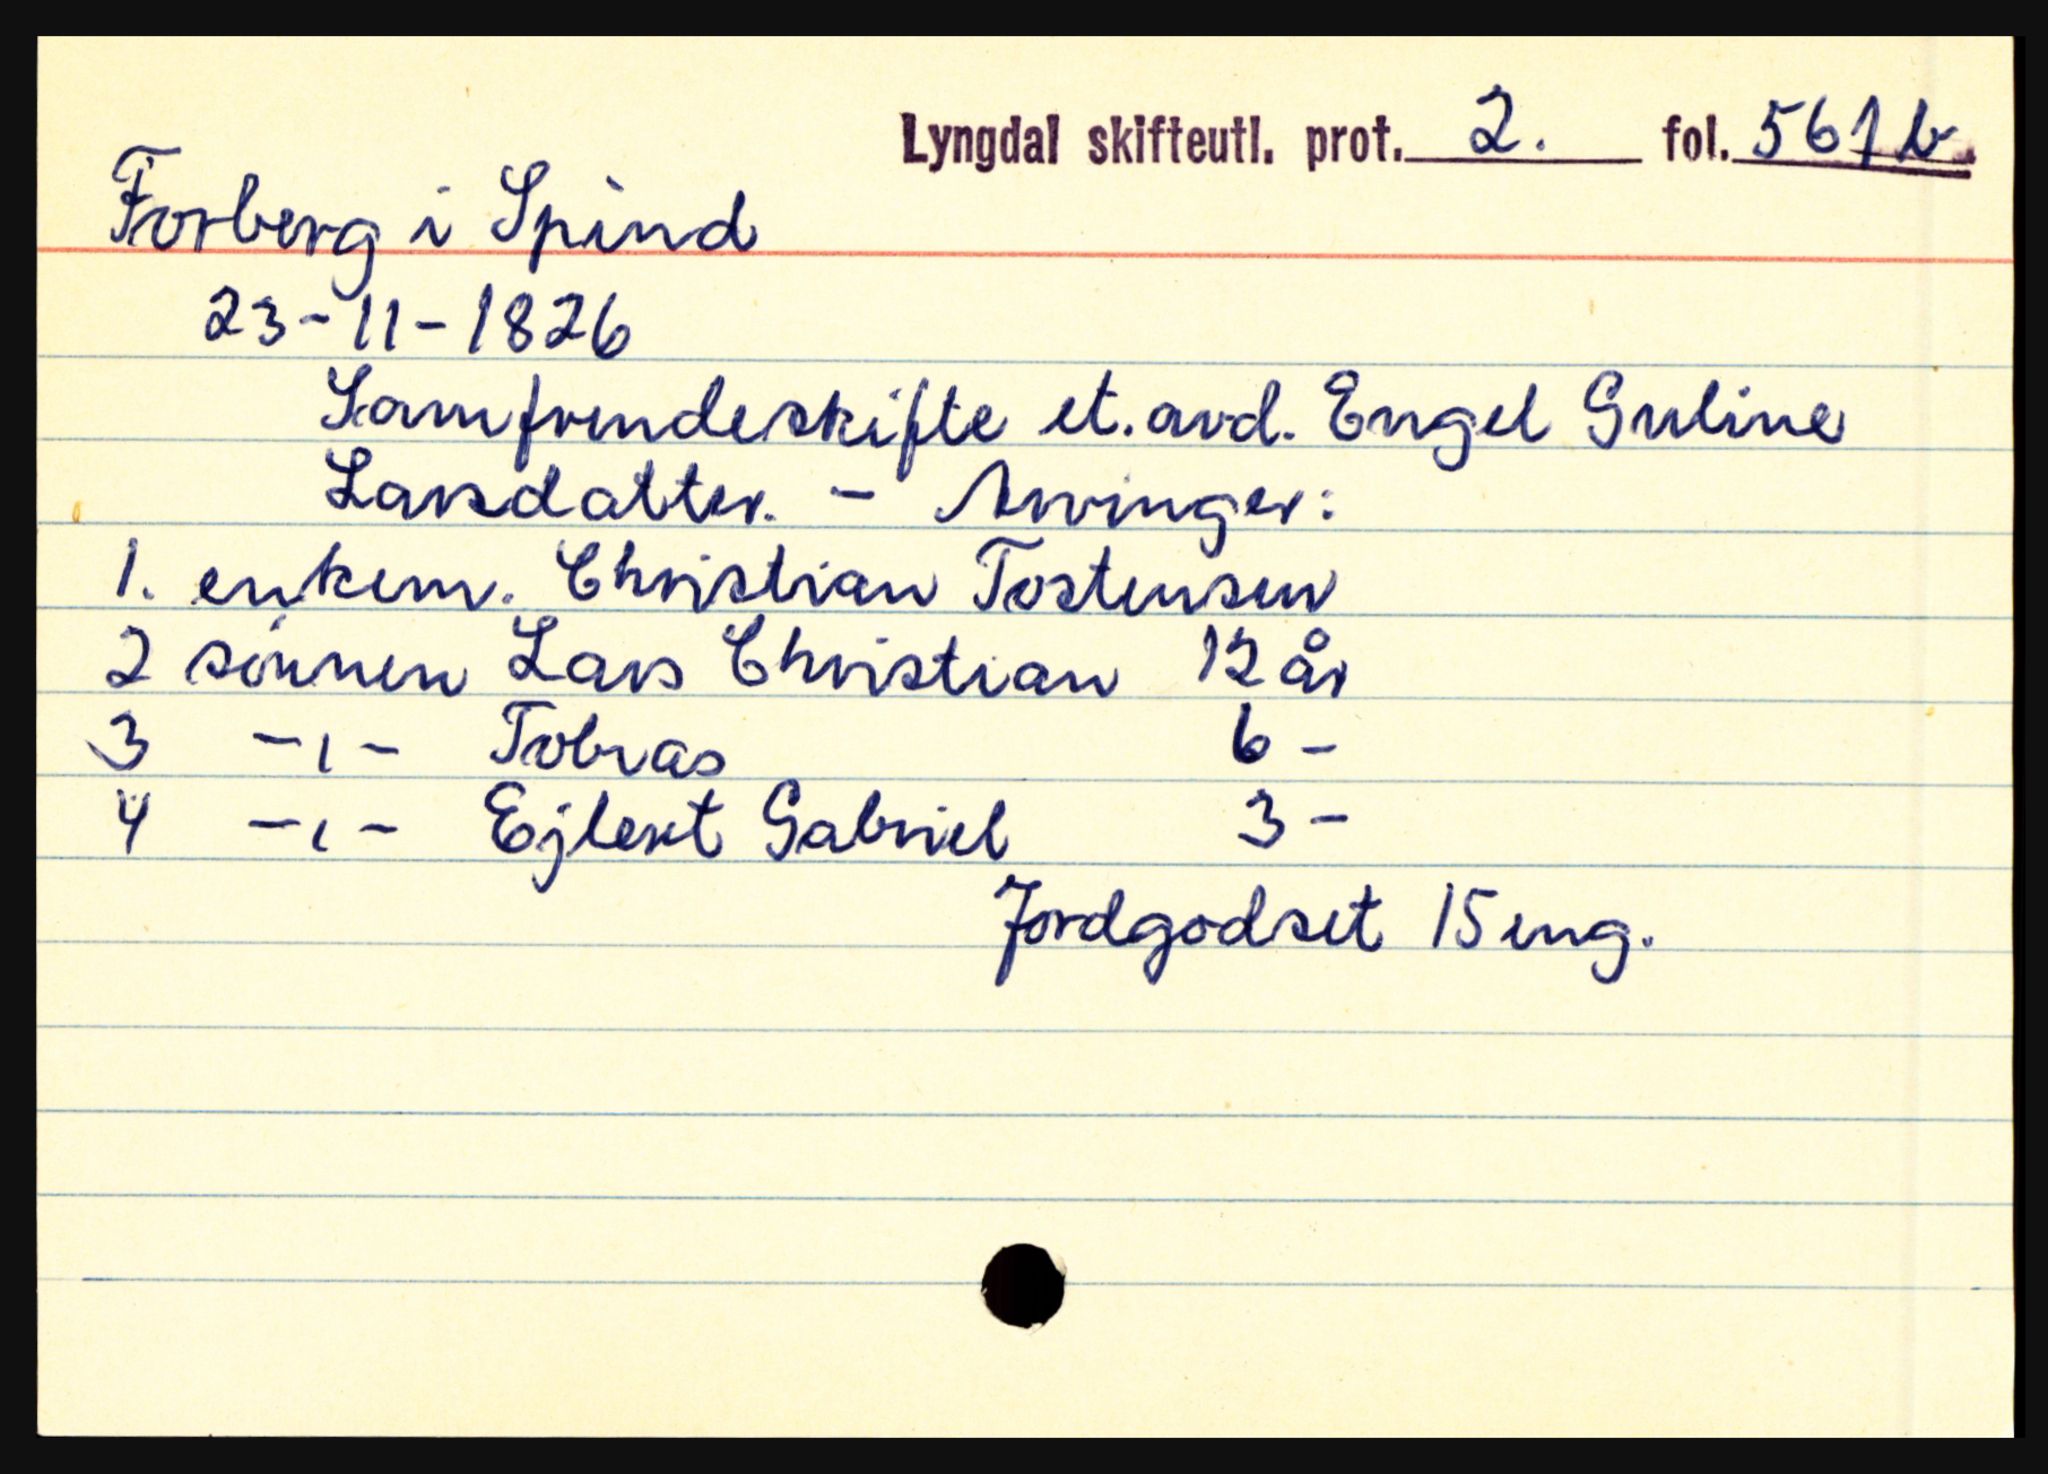 Lyngdal skifteutl. prot. 2. fol. 561 b
Forberg i Spind
23-11-1826
Samfrendeskifte et. avd. Engel Guline
Larsdatter. - Arvinger:
1. enkem. Christian Tostensen
2 sønnen Lars Christian 12 år
3 -ı- Tobias 6 -
4 -ı- Ejlert Gabriel 3 -
Jordgodset 15 eng.